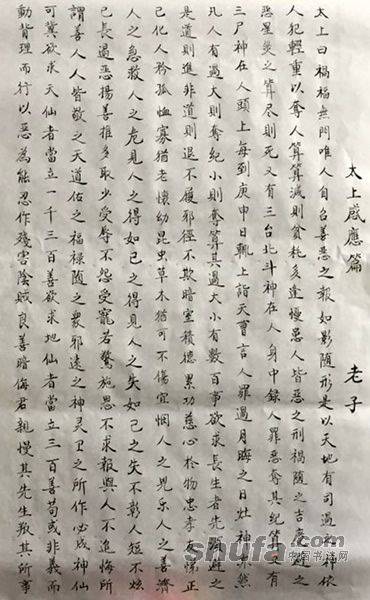 太上感應篇 老子
太上曰禍福無門唯人自召善惡之報如影隨形是以天地有司過之神依
人犯輕重以奪人算算減則貧耗多逢憂患人皆惡之刑禍隨之吉慶避之
惡星災之算尽則死又有三台北斗神在人身中錄人罪惡奪其紀算又有
三尸神在人頭上每到庚申日輒上詣天曹言人罪過月晦之日灶神亦然
凡人有過大則奪紀小則奪算其過大小有數百事欲求長生者先須避之
是道則進非道則退不履邪徑不欺暗室積德累功慈心於物忠孝友悌正
己化人矜孤恤寡猶老懷幼昆虫草木猶可不傷宜悯人之兇乐人之善濟
人之急救人之危見人之得如己之得見人之失如己之失不彰人短不炫
己長遏惡揚善推多取少受辱不怨受寵若驚施恩不求報與人不追悔所
謂善人人皆敬之天道佑之福禄隨之眾邪遠之神灵卫之所作必成神仙
可冀欲求天仙者當立一千三百善欲求地仙者當立三百善苟或非義而
動背理而行以惡為能忍作殘害陰賊良善暗侮君親慢其先生叛其所事
shufa.com
中国书法网